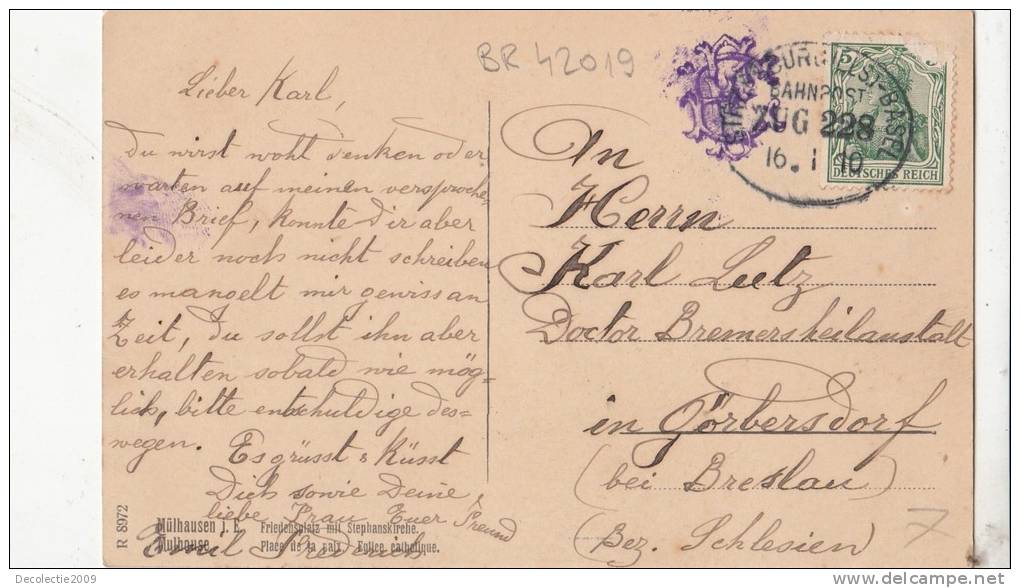 BR 42019
Lieber Karl,
Du wirst woht denken oder
warten auf meinen versproche,
nen Brief, konnte Dir aber
leider noch nicht schreiben
es mangelt mir gewiss an
Zeit, Du sollst ihn aber
erhalten sobald wie mög=
lich, bitte entschuldige des=
wegen. Es grüsst & küsst
Dich sowie Deine
liebe Frau Euer Freund
Emil
BASEL
BAHNPOST
ZUG 228
16. 1 10
5
DEUTSCHES REICH
An
Herrn
Karl Lutz
Doctor Bremersheilanstalt
in Görbersdorf
(bei Breslau)
(Bez. Schlesien)
7
R 8972
Mülhausen i. E. Friedensplatz mit Stephanskirche.
Mulhouse. Place de la paix. Eglise catholique.
Decolectie2009
www.delcampe.net